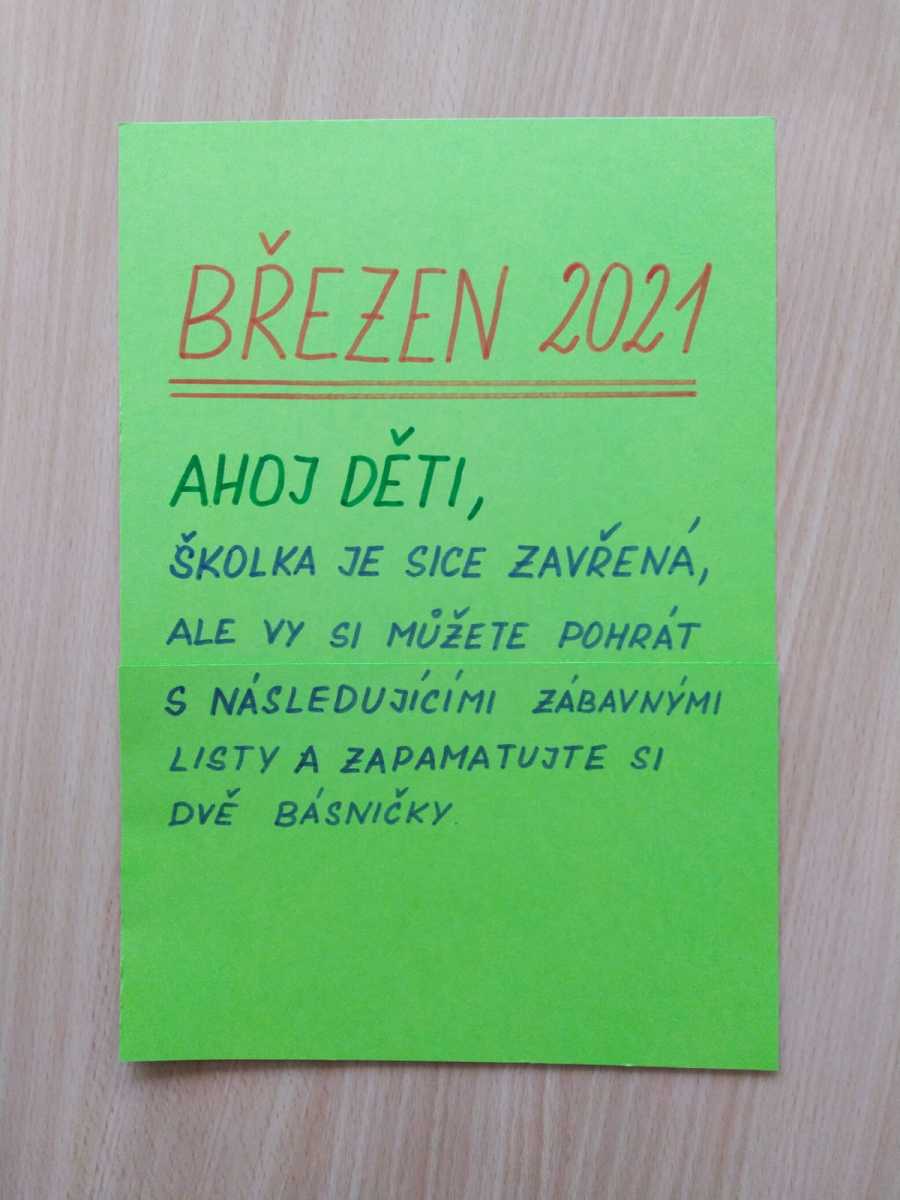 BŘEZEN 2021
AHOJ DĚTI,
ŠKOLKA JE SICE ZAVŘENÁ,
ALE VY SI MŮŽETE POHRÁT
S NÁSLEDUJÍCÍMI ZÁBAVNÝMI
LISTY A ZAPAMATUJTE SI
DVĚ BÁSNIČKY.